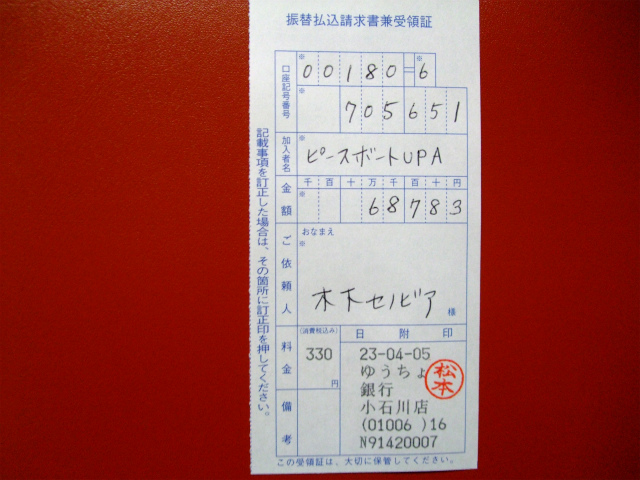 振替払込請求書兼受領証
口座記号番号
※
00180-6
※
※
705651
加入者名
※
ピースボートUPA
金額
千百十万千百十円
※
68783
ご依頼人
おなまえ
※
木下セルビア
様
料金
(消費税込み)
330
円
備考
日附印
23-04-05
ゆうちょ
銀行
小石川店
(01006 )16
N91420007
松本
記載事項を訂正した場合は、その箇所に訂正印を押してください。
この受領証は、大切に保管してください。